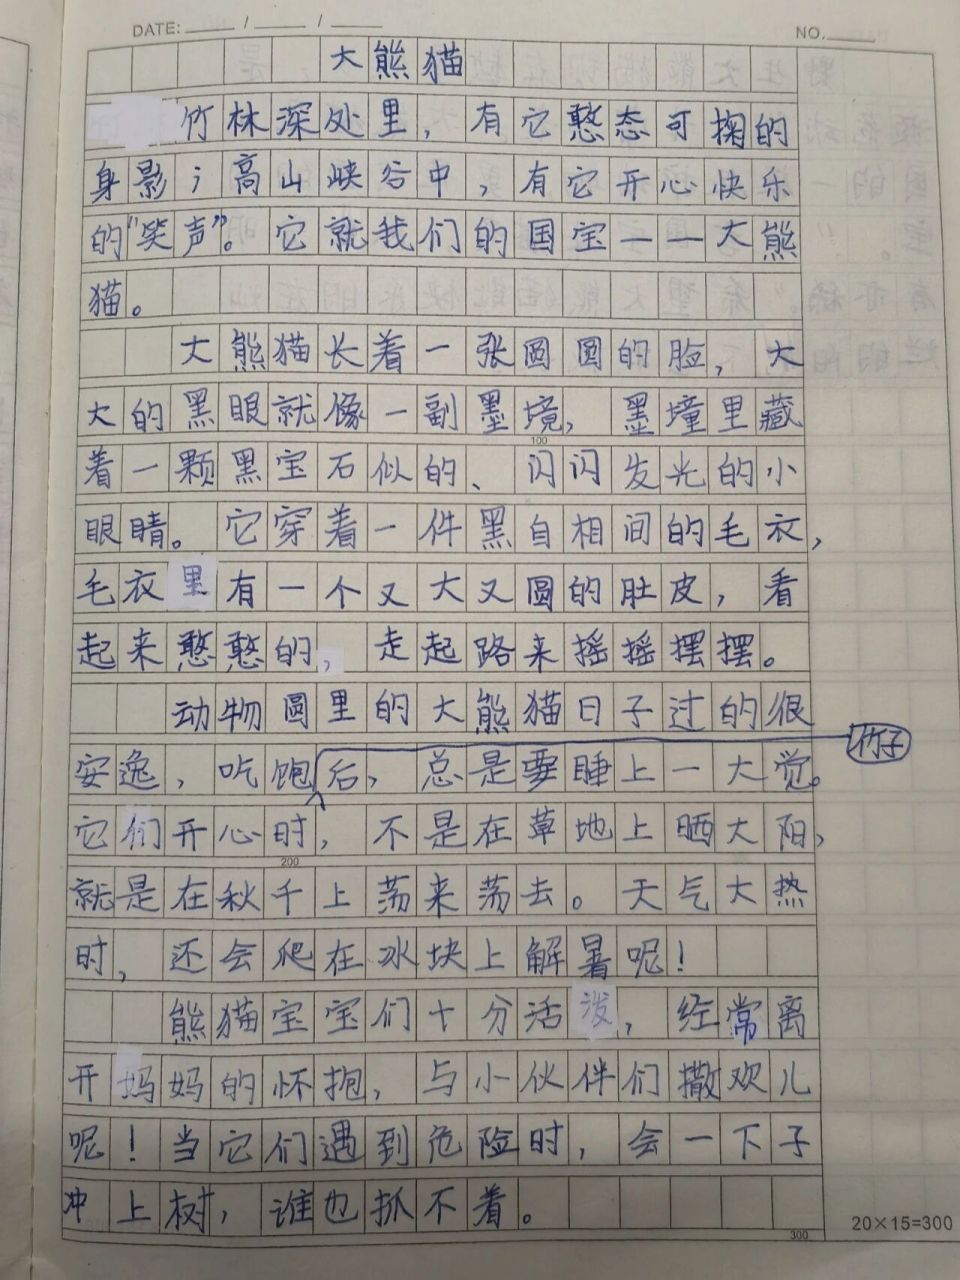 DATE: ____ / ____ / ____ NO. ____
大熊猫
竹林深处里，有它憨态可掬的
身影；高山峡谷中，有它开心快乐
的“笑声”。它就我们的国宝——大熊
猫。
大熊猫长着一张圆圆的脸，大
大的黑眼就像一副墨境，墨境里藏
100
着一颗黑宝石似的、闪闪发光的小
眼睛。它穿着一件黑自相间的毛衣，
毛衣里有一个又大又圆的肚皮，看
起来憨憨的，走起路来摇摇摆摆。
动物圆里的大熊猫日子过的很
安逸，吃饱竹子后，总是要睡上一大觉。
它们开心时，不是在草地上晒大阳，
200
就是在秋千上荡来荡去。天气大热
时，还会爬在冰块上解暑呢！
熊猫宝宝们十分活泼，经常离
开妈妈的怀抱，与小伙伴们撒欢儿
呢！当它们遇到危险时，会一下子
冲上树，谁也抓不着。
300
20×15=300